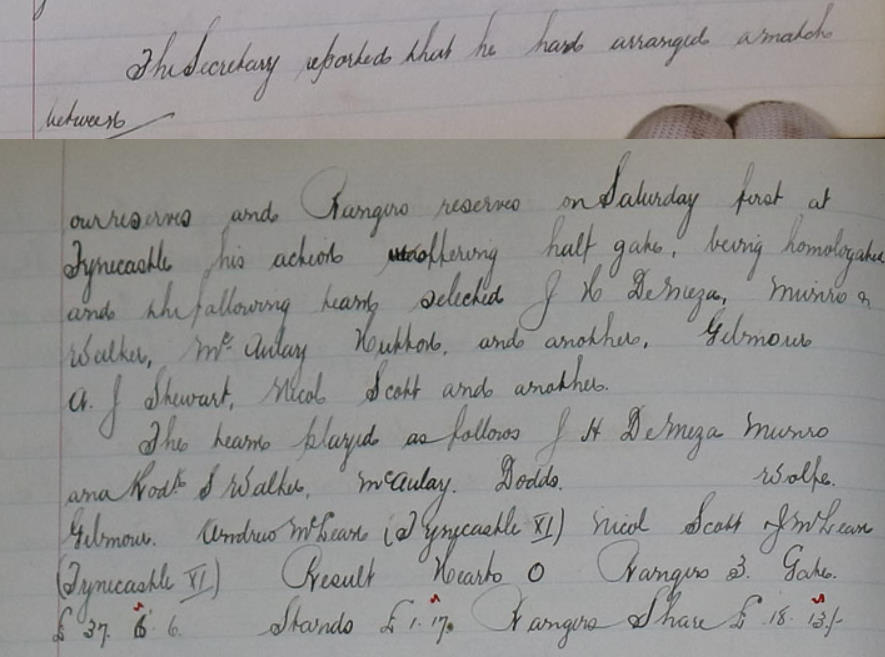 The Secretary reported that he had arranged a match
between
our reserves and Rangers reserves on Saturday first at
Tynecastle his action offering half gate, being homologated
and the following team selected J H DeMeza, Munro &
Walker, McAulay Hutton, and another, Gilmour
A. J Stewart, Nicol Scott and another.
The team played as follows J H DeMeza Munro
and Robt S Walker, McAulay. Dodds. Wolfe.
Gilmour. Andrew McLean (Tynecastle XI) Nicol Scott J McLean
(Tynecastle XI) Result Hearts 0 Rangers 3. Gate.
£ 37. 6. 6. Stands £ 1. 17. Rangers Share £ 18. 13/-